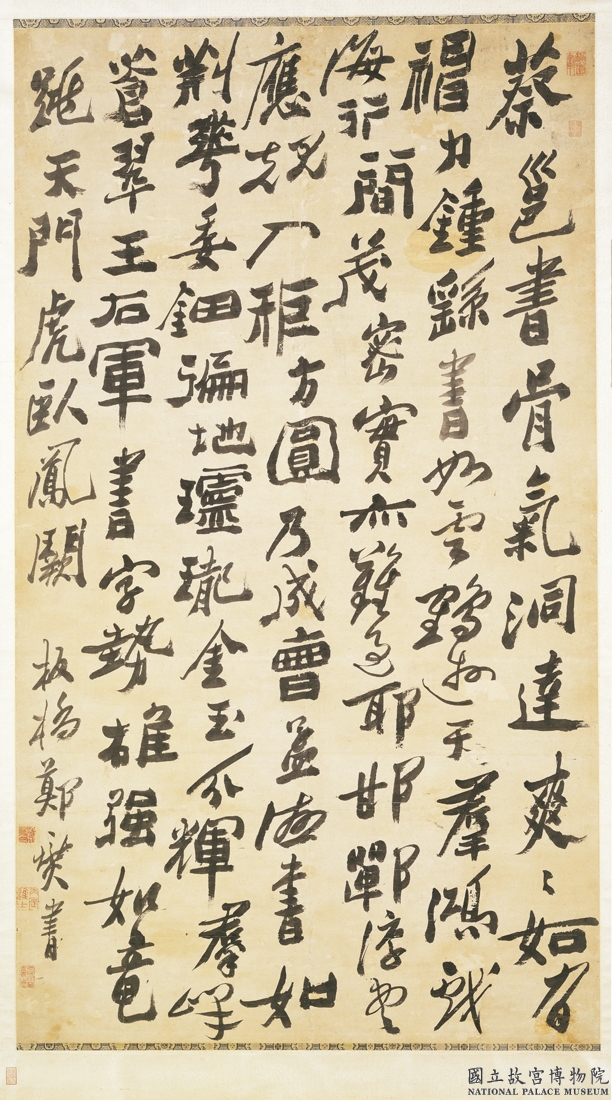 蔡邕書骨氣洞達爽〻如有
力鍾繇書如雲鵠遊天羣鴻戲
海行間茂密實亦難過耶邯鄲淳書
應規入矩方圓乃成曹孟德書如
委鈿遍地瓏金玉分輝羣峰
蒼翠王右軍書字勢雄强如竜
跳天門虎臥鳳闕
板橋鄭燮書
國立故宮博物院
NATIONAL PALACE MUSEUM